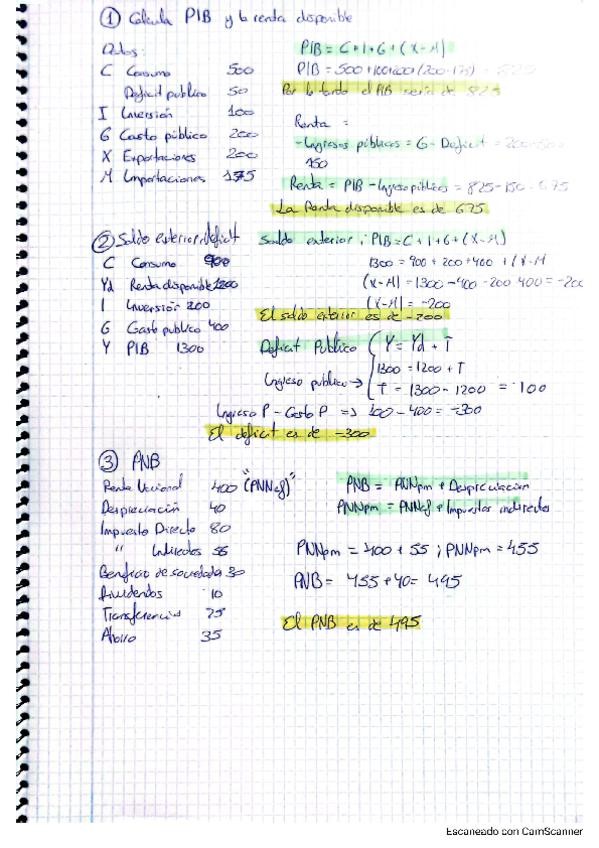 ① Calcula PIB y la renta disponible
Datos:
C Consumo 500
Deficit publico 50
I Inversión 100
G Gasto público 200
X Exportaciones 200
M Importaciones 175
PIB = C+I+G+(X-M)
PIB = 500+100+200+(200-175) = 825
Por lo tanto el PIB seria de 825
Renta =
-Ingresos públicos = G - Deficit = 200-50=
150
Renta = PIB - Ingreso público = 825-150=675
La Renta disponible es de 675
② Saldo exterior, deficit
C Consumo 900
Yd Renta disponible 1200
I Inversión 200
G Gasto publico 400
Y PIB 1300
Saldo exterior: PIB=C+I+G+(X-M)
1300 = 900 + 200 + 400 + (X-M)
(X-M) = 1300 - 900 - 200 400 = -200
(X-M) = -200
El saldo exterior es de -200
Deficit Publico { Y = Yd + T
1300 = 1200 + T
Ingreso publico → T = 1300 - 1200 = 100
Ingreso P - Gasto P => 100 - 400 = -300
El deficit es de -300
③ PNB
Renta Nacional 400 "(PNNcf)"
Depreciación 40
Impuesto Directo 80
" Indirectos 55
Beneficio de sociedades 30
Dividendos 10
Transferencias 25
Ahorro 35
PNB = PNNpm + Depreciación
PNNpm = PNNcf + Impuestos indirectos
PNNpm = 400 + 55 ; PNNpm = 455
PNB = 455 + 40 = 495
El PNB es de 495
Escaneado con CamScanner